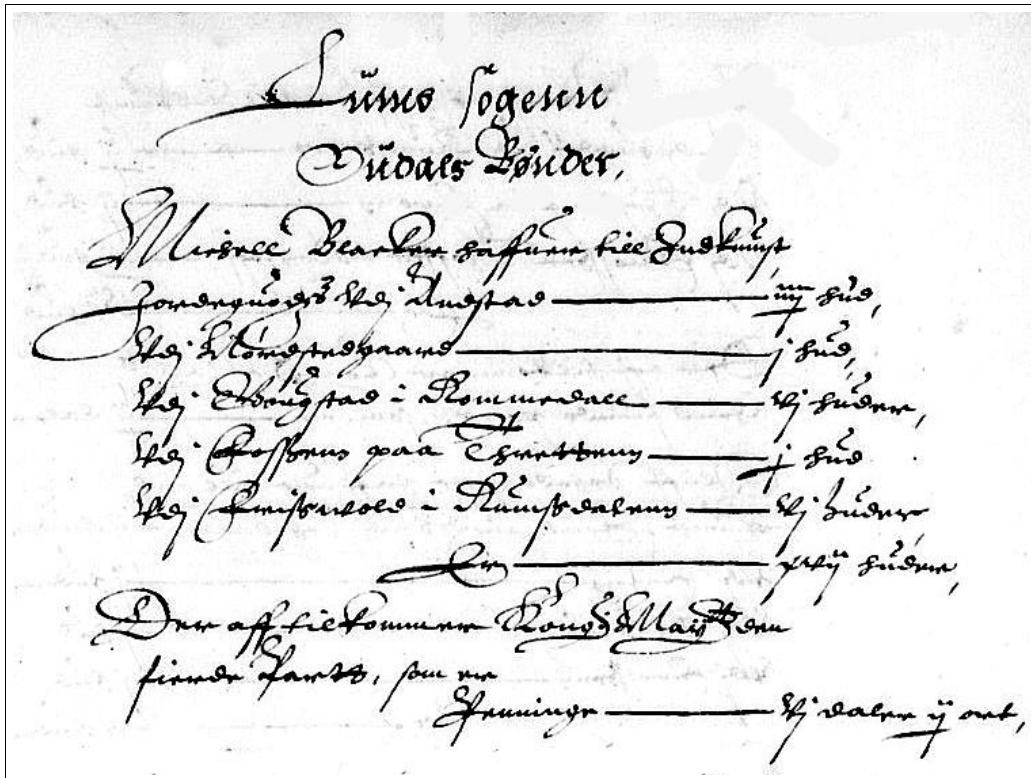 Lüms sogenn
Oüdals Bønder,
Michell Blacker haffuer till Indkumst
Jordeguodtz Vdj Andstad — iiij hud,
Vdj Nordstedgaard — j hud,
Vdj i Rommedall — vj huder,
Vdj Fossenn paa Threttenn — j hud
Vdj i Rumssdalenn — vj huder,
Er — xvij huder,
Der aff tilkommer Kong: Maytz: den
fierde Partt, som er
Penninge — vj daler ij ort,